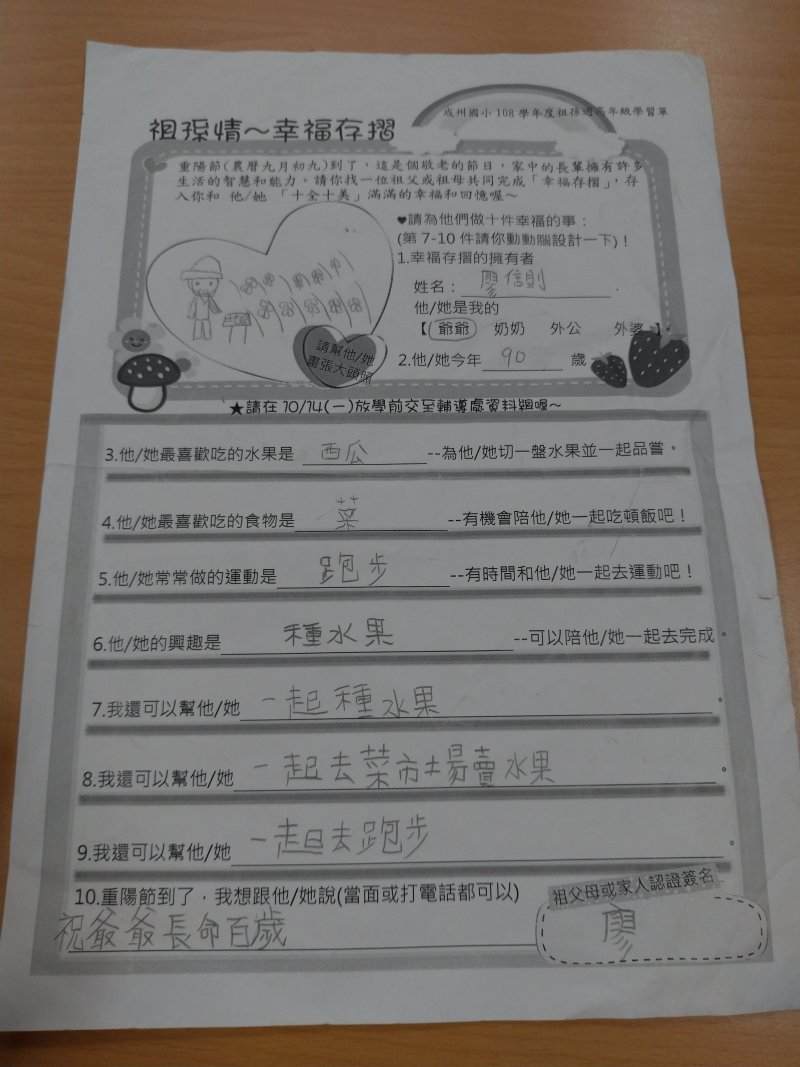 成州國小108學年度祖孫週高年級學習單
祖孫情～幸福存摺
重陽節(農曆九月初九)到了，這是個敬老的節日，家中的長輩擁有許多
生活的智慧和能力。請你找一位祖父或祖母共同完成「幸福存摺」，存
入你和 他/她 「十全十美」滿滿的幸福和回憶喔～
♥請為他們做十件幸福的事：
(第 7-10 件請你動動腦設計一下)！
1.幸福存摺的擁有者
姓名： 廖信則 .
他/她是我的
【 爺爺 奶奶 外公 外婆 】。
2.他/她今年 90 歲
請幫他/她
畫張大頭照
★請在 10/14(一)放學前交至輔導處資料組喔～
3.他/她最喜歡吃的水果是 西瓜 --為他/她切一盤水果並一起品嘗。
4.他/她最喜歡吃的食物是 菜 --有機會陪他/她一起吃頓飯吧！
5.他/她常常做的運動是 跑步 --有時間和他/她一起去運動吧！
6.他/她的興趣是 種水果 --可以陪他/她一起去完成。
7.我還可以幫他/她 一起種水果 。
8.我還可以幫他/她 一起去菜市場賣水果 。
9.我還可以幫他/她 一起去跑步 。
10.重陽節到了，我想跟他/她說(當面或打電話都可以)
祝爺爺長命百歲
祖父母或家人認證簽名
廖